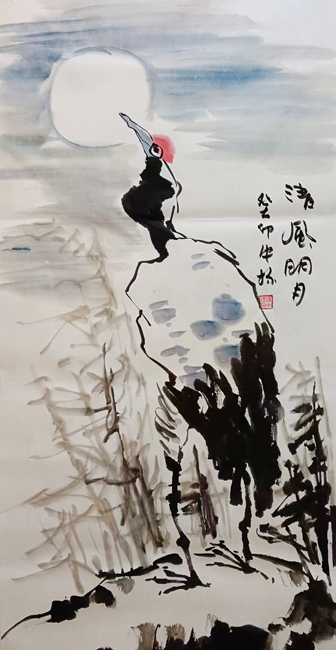 清风明月
癸卯中秋